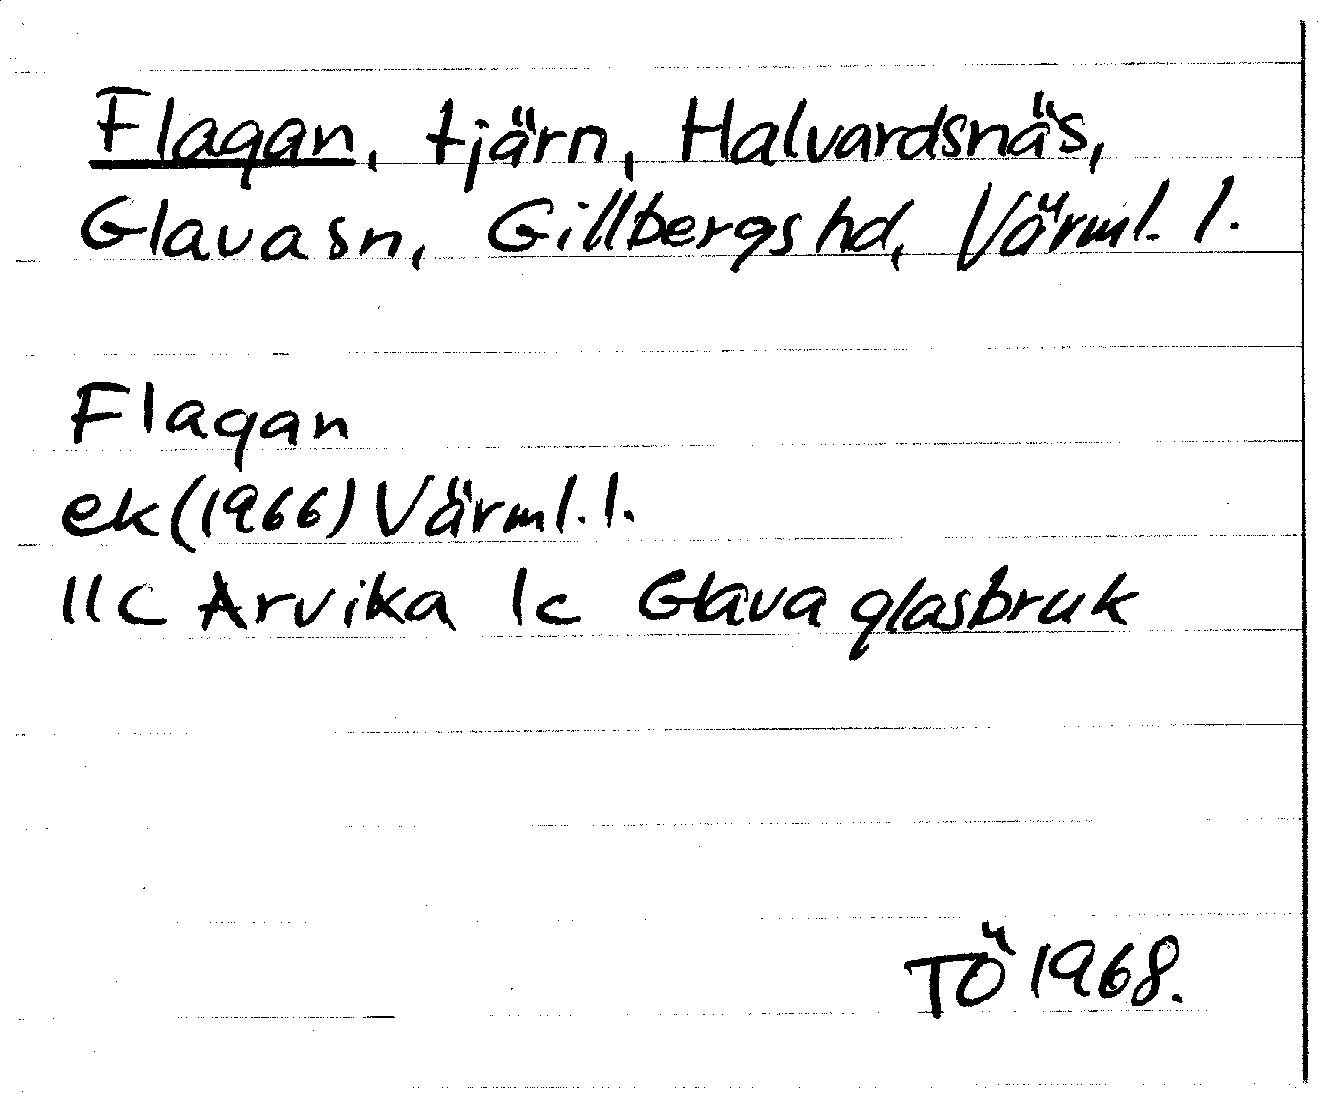 Flagan, tjärn, Halvardsnäs,
Glava sn, Gillbergs hd, Värml. l.
Flagan
ek (1966) Värml. l.
11C Arvika 1c Glava glasbruk
TÖ 1968.